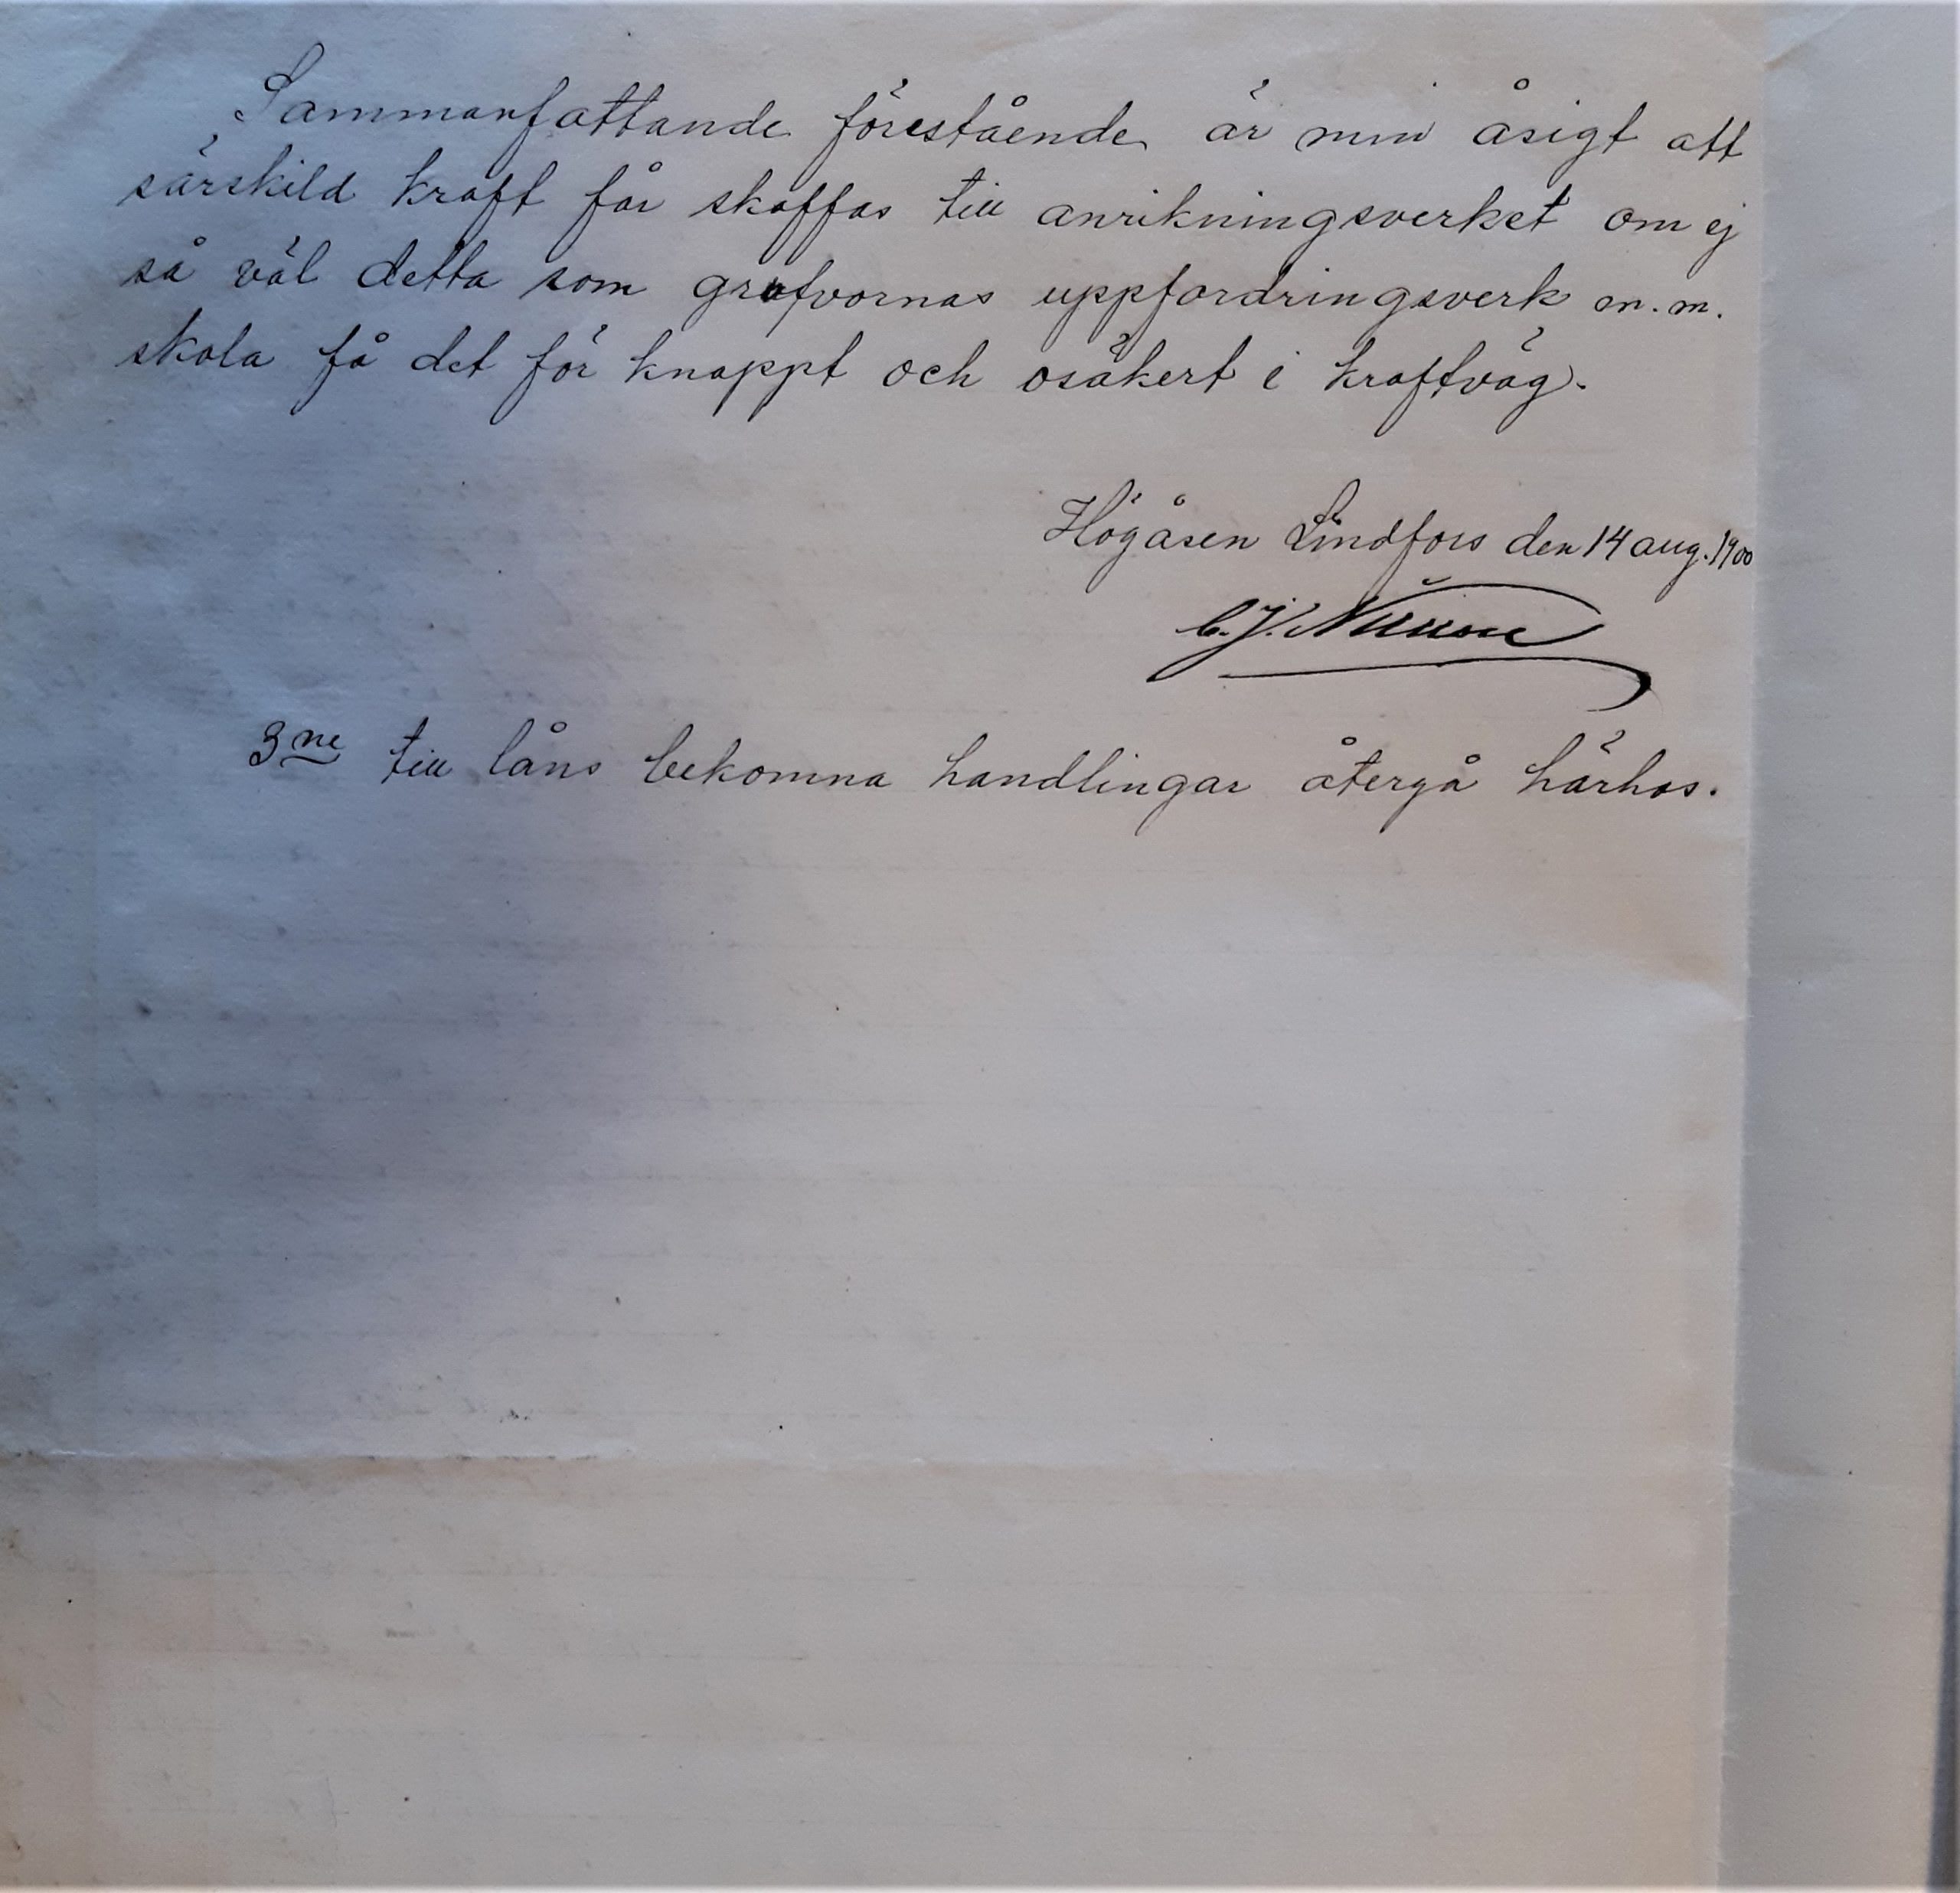 Sammanfattande förestående är min åsigt att
särskild kraft får skaffas till anrikningsverket om ej
så väl detta som grufvornas uppfordringsverk m.m.
skola få det för knappt och osäkert i kraftväg.
Högåsen Lindfors den 14 aug. 1900
C. J.
3ne till låns bekomna handlingar återgå härhos.